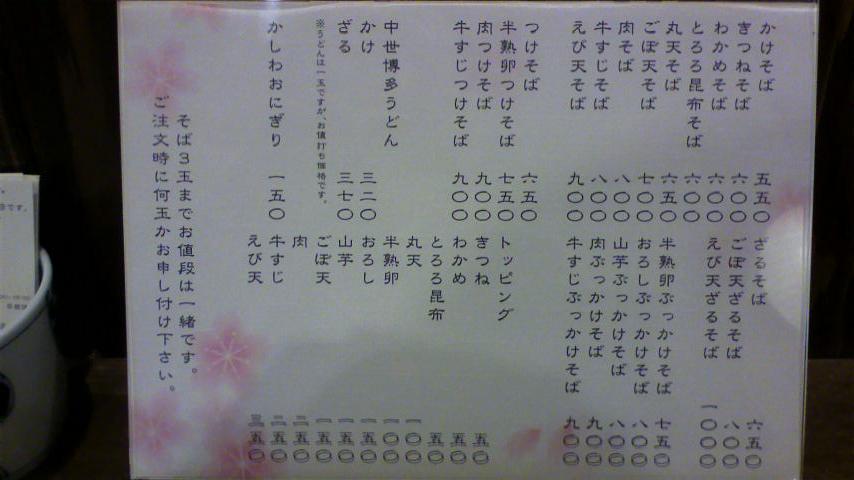 かけそば 五五〇
きつねそば 六〇〇
わかめそば 六〇〇
とろろ昆布そば 六〇〇
丸天そば 六五〇
ごぼ天そば 七〇〇
肉そば 八〇〇
牛すじそば 八〇〇
えび天そば 九〇〇
つけそば 六五〇
半熟卵つけそば 七五〇
肉つけそば 九〇〇
牛すじつけそば 九〇〇
中世博多うどん
かけ 三二〇
ざる 三七〇
※うどんは一玉ですが、お値打ち価格です。
かしわおにぎり 一五〇
ざるそば 六五〇
ごぼ天ざるそば 八〇〇
えび天ざるそば 一〇〇〇
半熟卵ぶっかけそば 七五〇
おろしぶっかけそば 八〇〇
山芋ぶっかけそば 八〇〇
肉ぶっかけそば 九〇〇
牛すじぶっかけそば 九〇〇
トッピング
きつね 五〇
わかめ 五〇
とろろ昆布 五〇
丸天 一〇〇
半熟卵 一〇〇
おろし 一五〇
山芋 一五〇
ごぼ天 一五〇
肉 二五〇
牛すじ 二五〇
えび天 三五〇
そば3玉までお値段は一緒です。
ご注文時に何玉かお申し付け下さい。